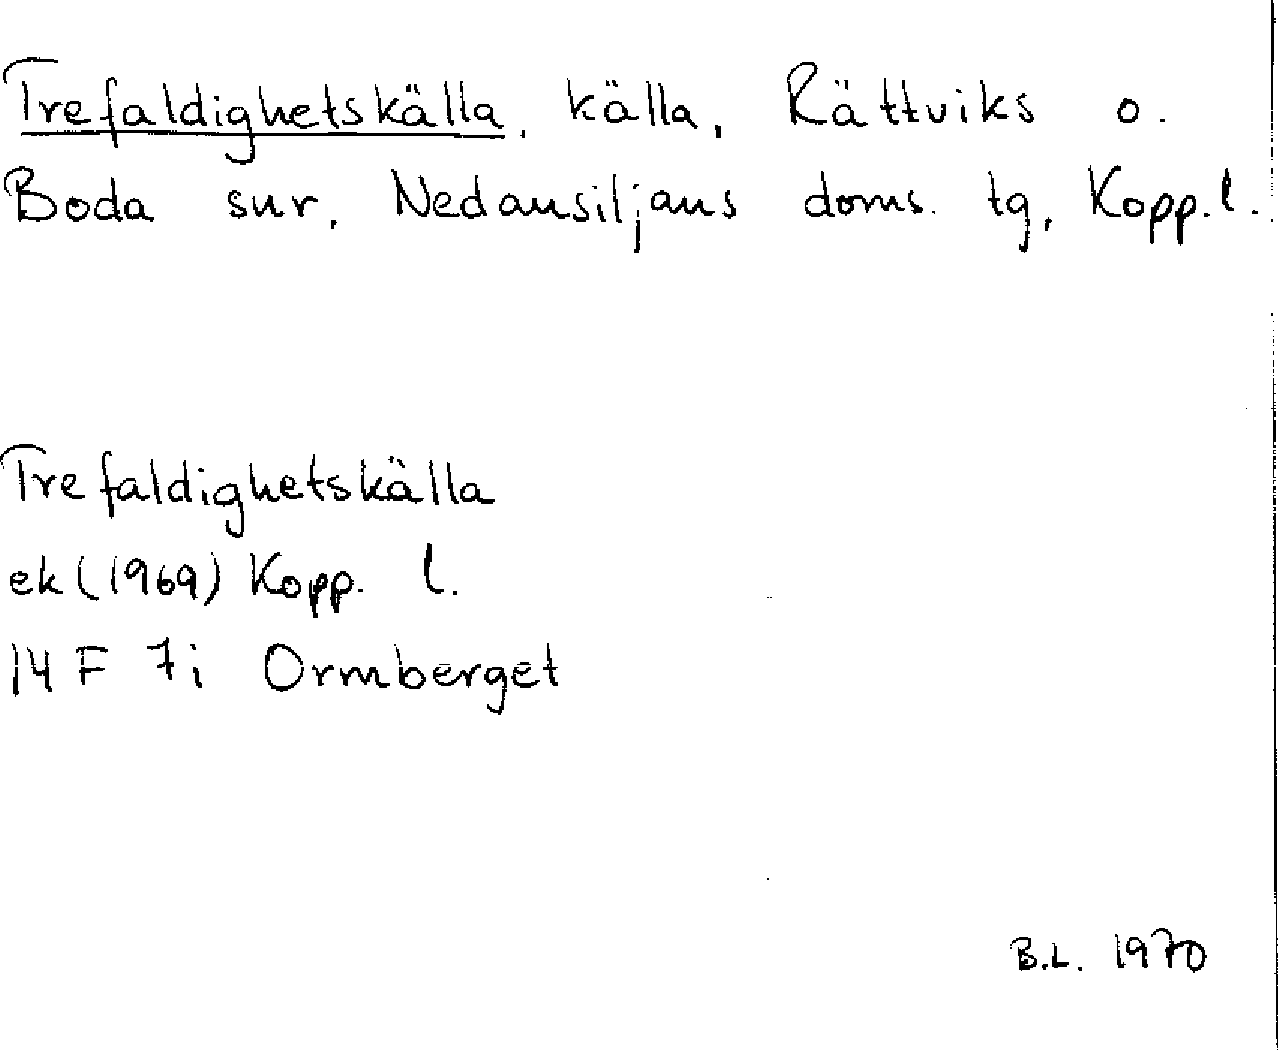 Trefaldighetskälla, källa, Rättviks o.
Boda snr, Nedansiljans doms. tg, Kopp. l.
Trefaldighetskälla
ek (1969) Kopp. l.
14 F 7i Ormberget
B.L. 1970